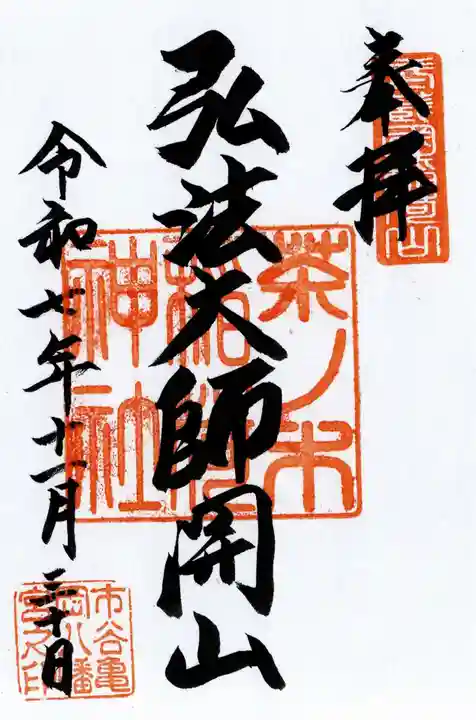 奉拝
弘法大師開山
令和七年十一月三十日
茶ノ木
稲荷
神社
市谷亀
岡八幡
宮之印